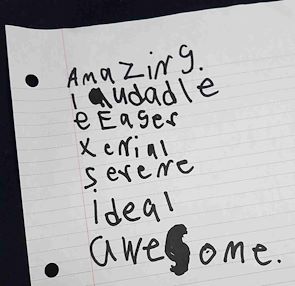 Amazing.
laudadle
eEager
xenial
serene
ideal
awesome.